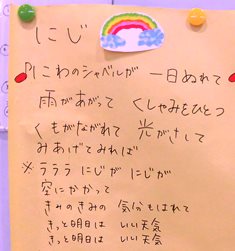 にじ
にわのシャベルが 一日ぬれて
雨があがって くしゃみをひとつ
くもがながれて 光がさして
みあげてみれば
※ラララ にじが にじが
空にかかって
きみのきみの 気分もはれて
きっと明日は いい天気
きっと明日は いい天気